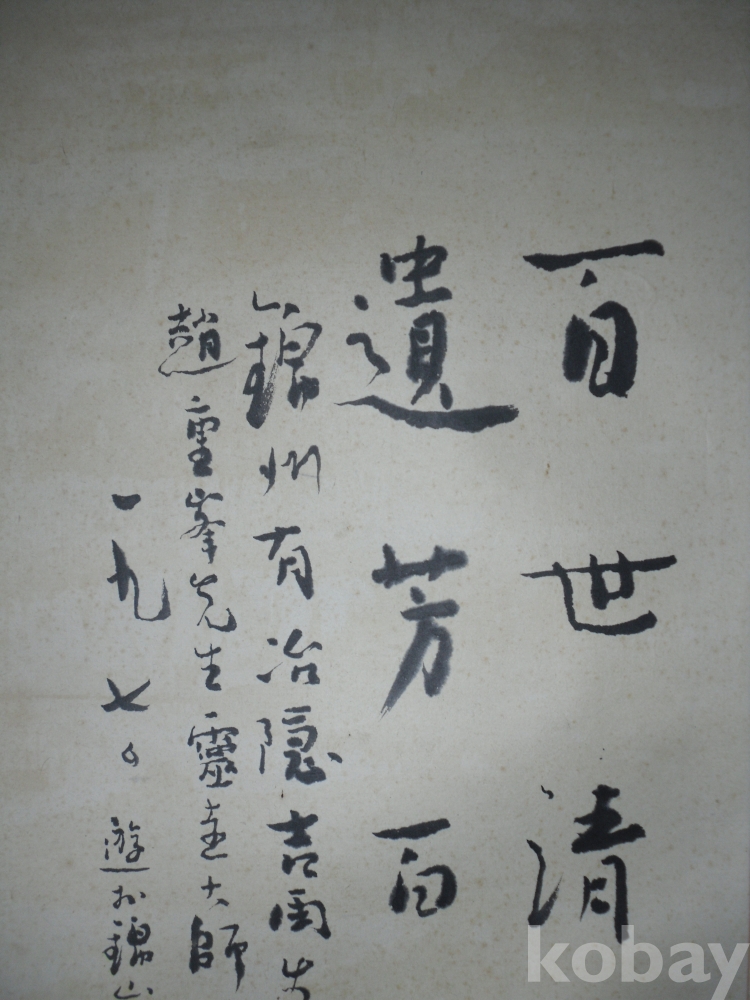 百世清
遺芳百
錦州有冶隱吉

趙重峯先生靈圭大師
一九七〇 遊於錦山
kobay